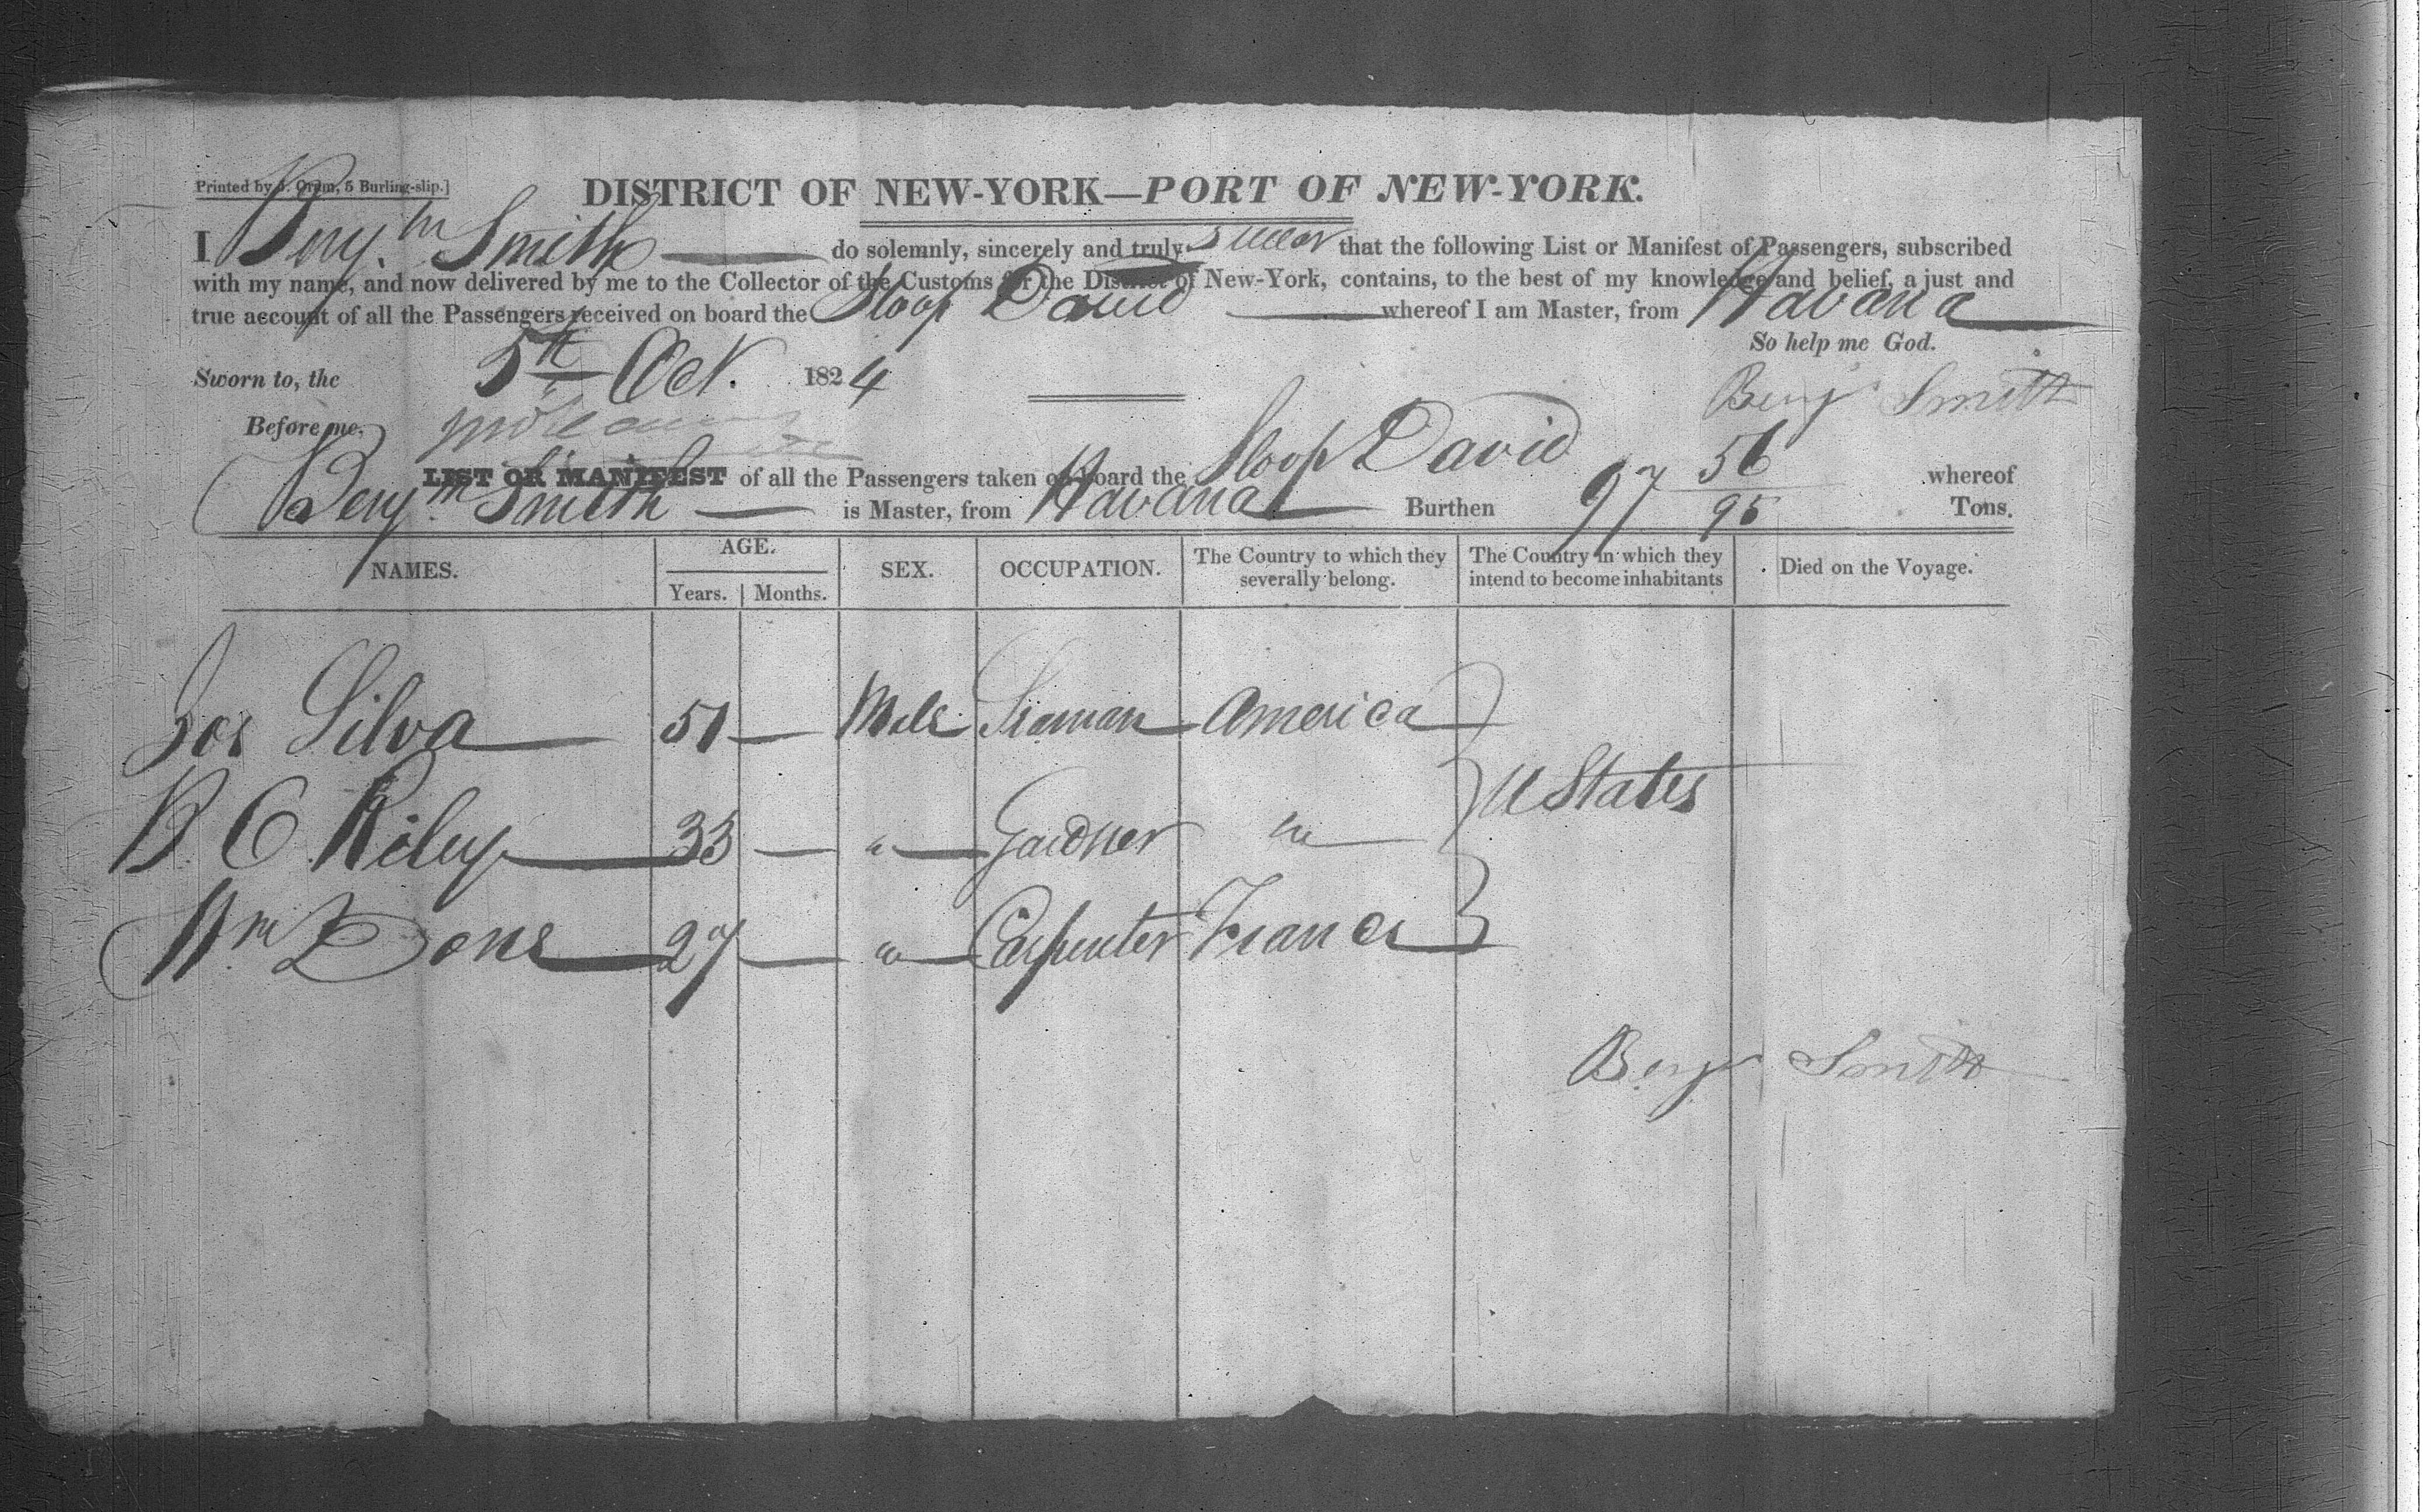 Printed by J. Oram, 5 Burling-slip.]
DISTRICT OF NEW-YORK—PORT OF NEW-YORK.
I Benj.m Smith do solemnly, sincerely and truly swear that the following List or Manifest of Passengers, subscribed
with my name, and now delivered by me to the Collector of the Customs for the District of New-York, contains, to the best of my knowledge and belief, a just and
true account of all the Passengers received on board the Sloop David whereof I am Master, from Havana
So help me God.
Sworn to, the 5th Oct. 1824
Benj Smith
Before me,
LIST OR MANIFEST of all the Passengers taken on board the Sloop David whereof
Benj.m Smith is Master, from Havana Burthen 97 56/95 Tons.
NAMES. AGE. Years. Months. SEX. OCCUPATION. The Country to which they severally belong. The Country in which they intend to become inhabitants Died on the Voyage.
Jos Silva 51 — Male Seaman America
U States
B C Riley 33 — " Gardner "
Wm Done 27 — " Carpenter France
Benj Smith